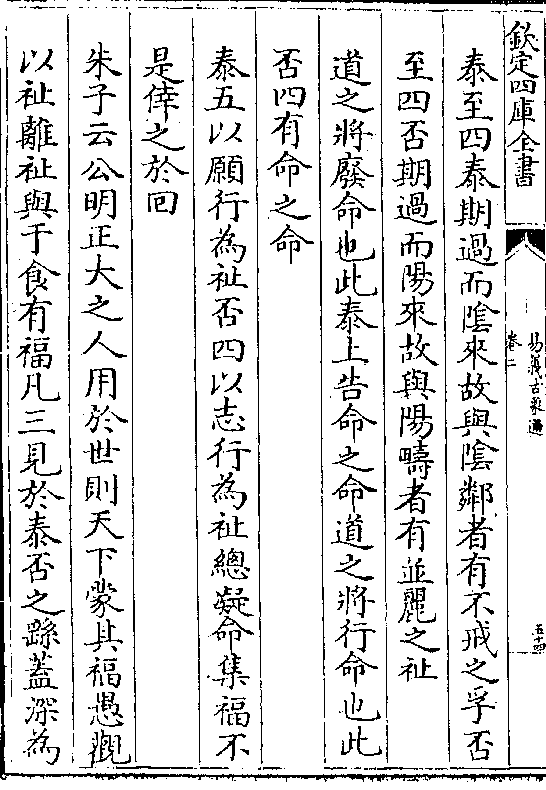 欽定四庫全書
易義古象通
卷二
五十四
泰至四泰期過而陰來故與陰鄰者有不戒之孚否
至四否期過而陽來故與陽疇者有並麗之祉
道之將廢命也此泰上告命之命道之將行命也此
否四有命之命
泰五以願行為祉否四以志行為祉總凝命集福不
是倖之於回
朱子云公明正大之人用於世則天下蒙其福愚觀
以祉離祉與于食有福凡三見於泰否之繇蓋深為